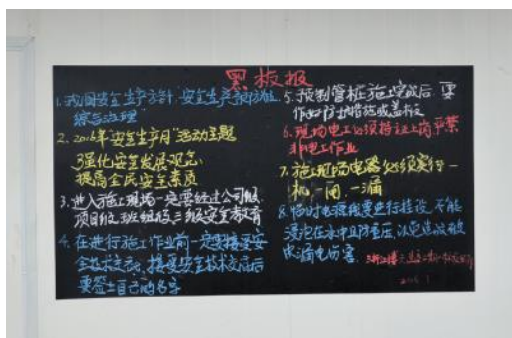 黑板报
1. 我国安全生产方针"安全生产预防为主
综合治理"
2. 2016年"安全生产月"活动主题
强化安全发展观念
提高全民安全素质
3. 进入施工现场一定要经过公司级
项目级班组级三级安全教育
4. 在进行施工作业前一定要接受安
全技术交底, 接受安全技术交底后
要签上自己的名字
5. 预制管桩施工完成后 要
作好防护措施或盖板
6. 现场电工必须持证上岗严禁
非电工作业
7. 施工现场电器必须实行一
机 一闸 一漏
8. 临时电源线要进行挂设 不能
浸泡在水中且防重压 以免造成
漏电伤害